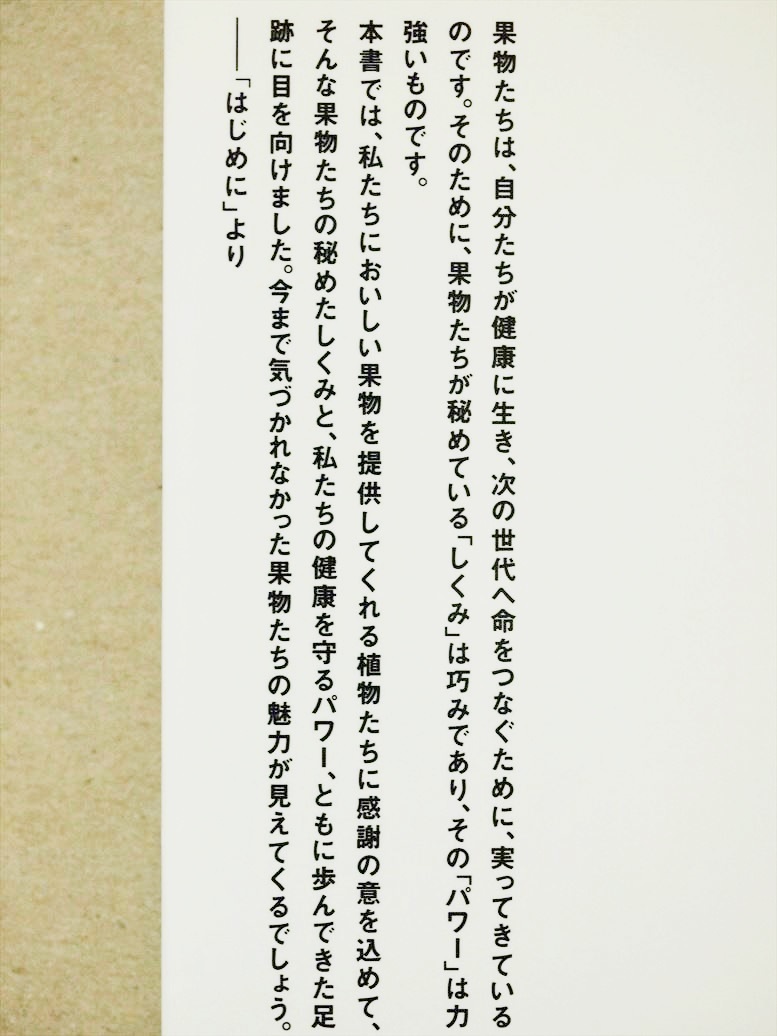 果物たちは、自分たちが健康に生き、次の世代へ命をつなぐために、実ってきている
のです。そのために、果物たちが秘めている「しくみ」は巧みであり、その「パワー」は力
強いものです。
本書では、私たちにおいしい果物を提供してくれる植物たちに感謝の意を込めて、
そんな果物たちの秘めたしくみと、私たちの健康を守るパワー、ともに歩んできた足
跡に目を向けました。今まで気づかれなかった果物たちの魅力が見えてくるでしょう。
――「はじめに」より